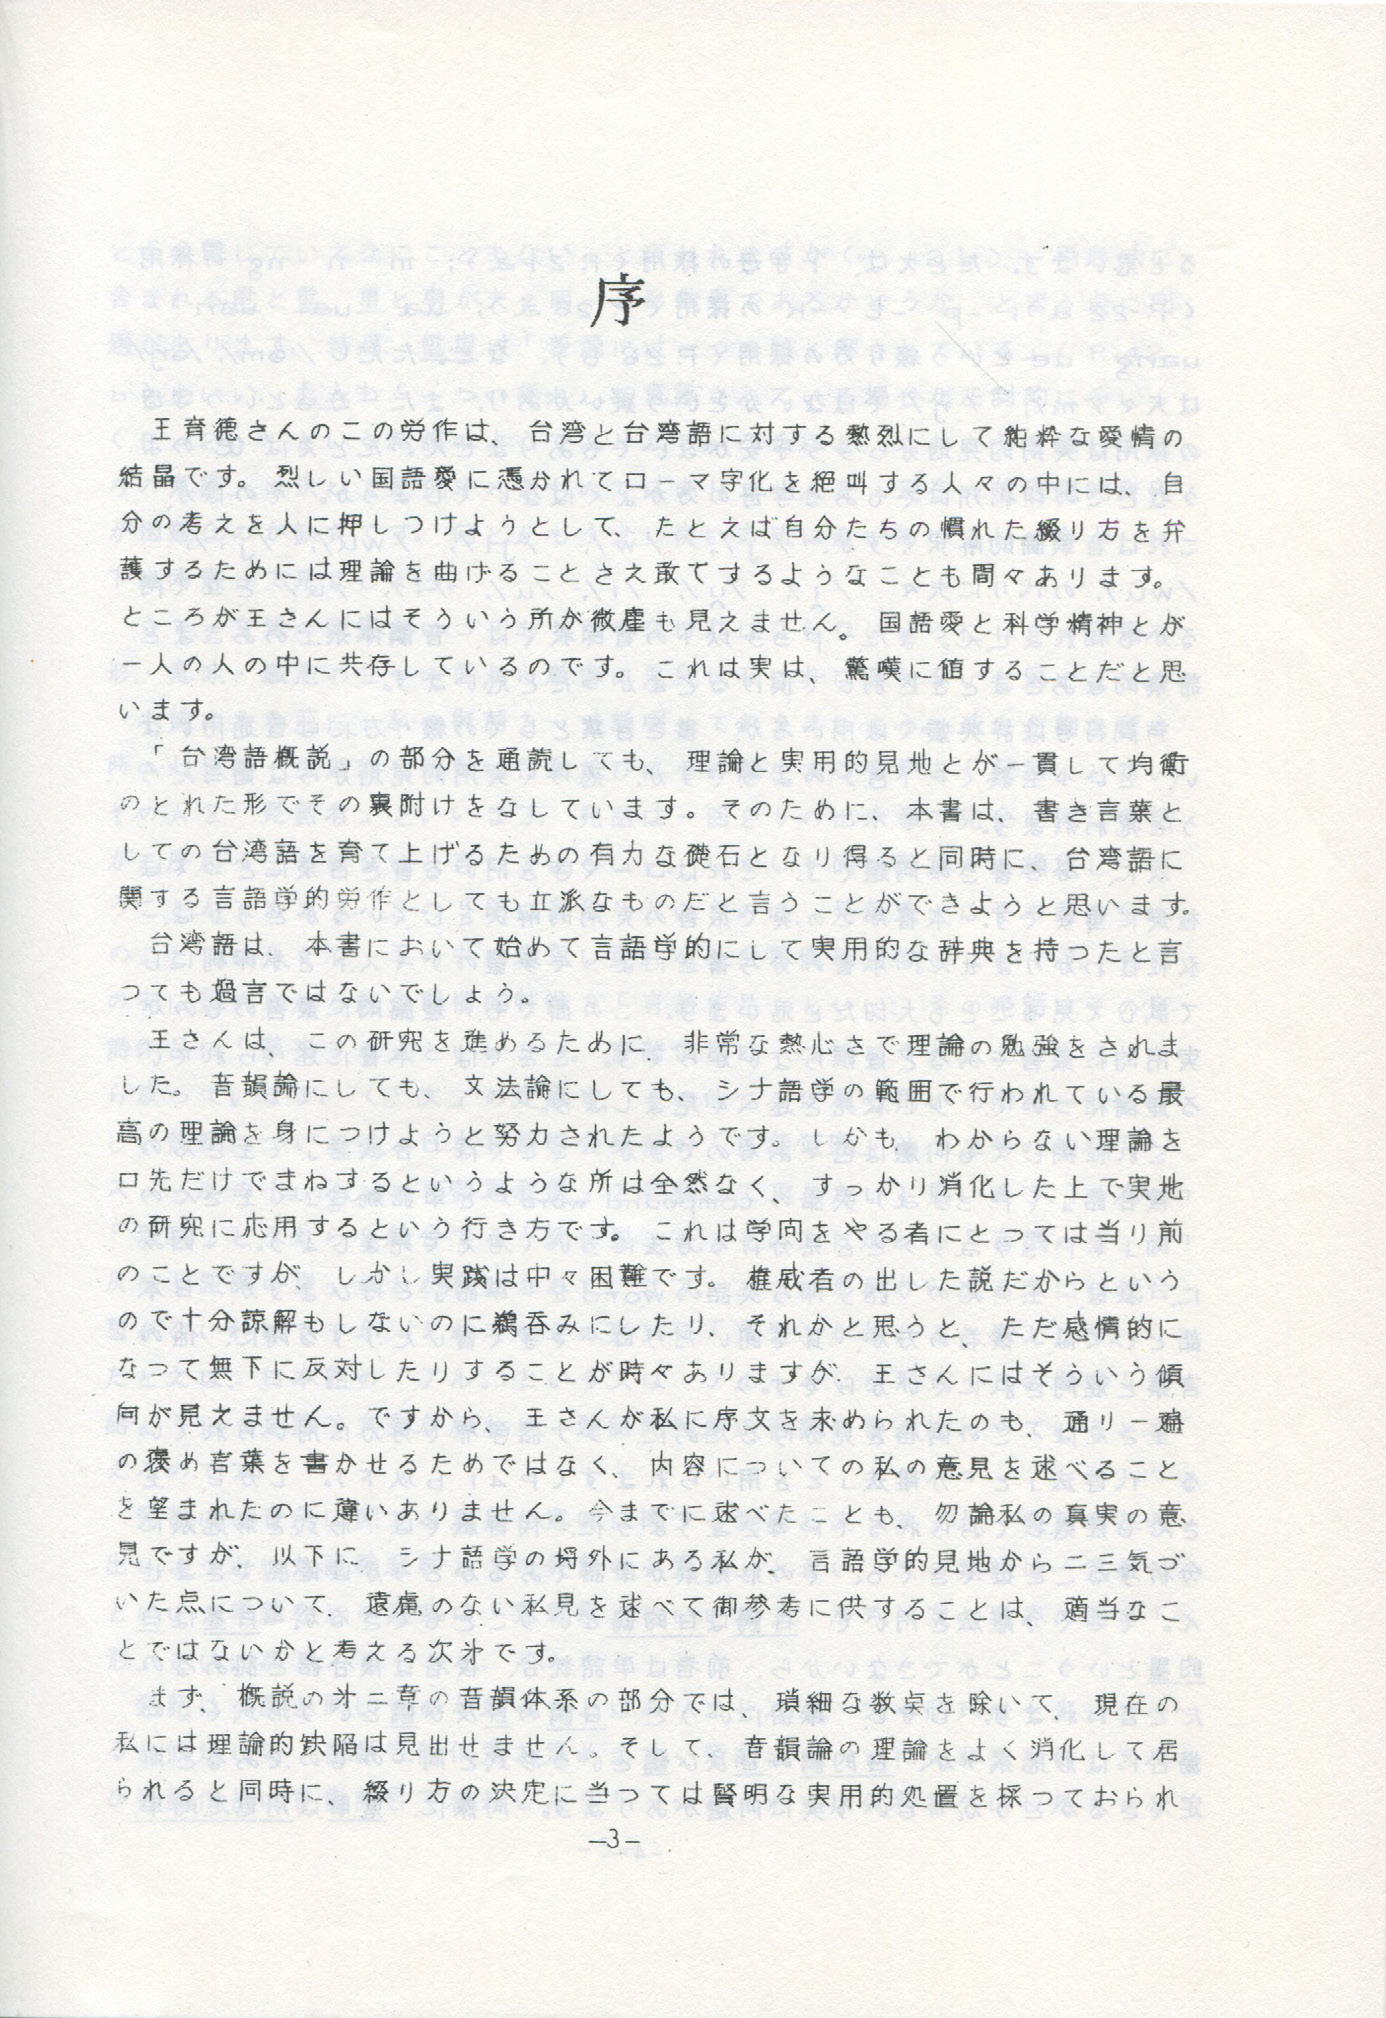 序
王育徳さんのこの労作は、台湾と台湾語に対する熱烈にして純粋な愛情の
結晶です。烈しい国語愛に憑かれてローマ字化を絶叫する人々の中には、自
分の考えを人に押しつけようとして、たとえば自分たちの慣れた綴り方を弁
護するためには理論を曲げることさえ敢てするようなことも間々あります。
ところが王さんにはそういう所が微塵も見えません。国語愛と科学精神とが
一人の人の中に共存しているのです。これは実は、驚嘆に値することだと思
います。
「台湾語概説」の部分を通読しても、理論と実用的見地とが一貫して均衡
のとれた形でその裏附けをなしています。そのために、本書は、書き言葉と
しての台湾語を育て上げるための有力な礎石となり得ると同時に、台湾語に
関する言語学的労作としても立派なものだと言うことができようと思います。
台湾語は、本書において始めて言語学的にして実用的な辞典を持つたと言
つても過言ではないでしょう。
王さんは、この研究を進めるために、非常な熱心さで理論の勉強をされま
した。音韻論にしても、文法論にしても、シナ語学の範囲で行われている最
高の理論を身につけようと努力されたようです。しかも、わからない理論を
口先だけでまねするというような所は全然なく、すっかり消化した上で実地
の研究に応用するという行き方です。これは学向をやる者にとっては当り前
のことですが、しかし実践は中々困難です。権威者の出した説だからという
ので十分諒解もしないのに鵜呑みにしたり、それかと思うと、ただ感情的に
なって無下に反対したりすることが時々ありますが、王さんにはそういう傾
向が見えません。ですから、王さんが私に序文を求められたのも、通り一遍
の褒め言葉を書かせるためではなく、内容についての私の意見を述べること
を望まれたのに違いありません。今までに述べたことも、勿論私の真実の意
見ですが、以下に、シナ語学の埒外にある私が、言語学的見地から二三気づ
いた点について、遠慮のない私見を述べて御参考に供することは、適当なこ
とではないかと考える次才です。
まず、概説の才二章の音韻体系の部分では、瑣細な数点を除いて、現在の
私には理論的缺陥は見出せません。そして、音韻論の理論をよく消化して居
られると同時に、綴り方の決定に当つては賢明な実用的処置を採つておられ
—3—